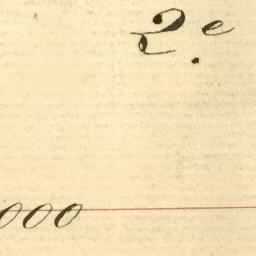 2e.
000